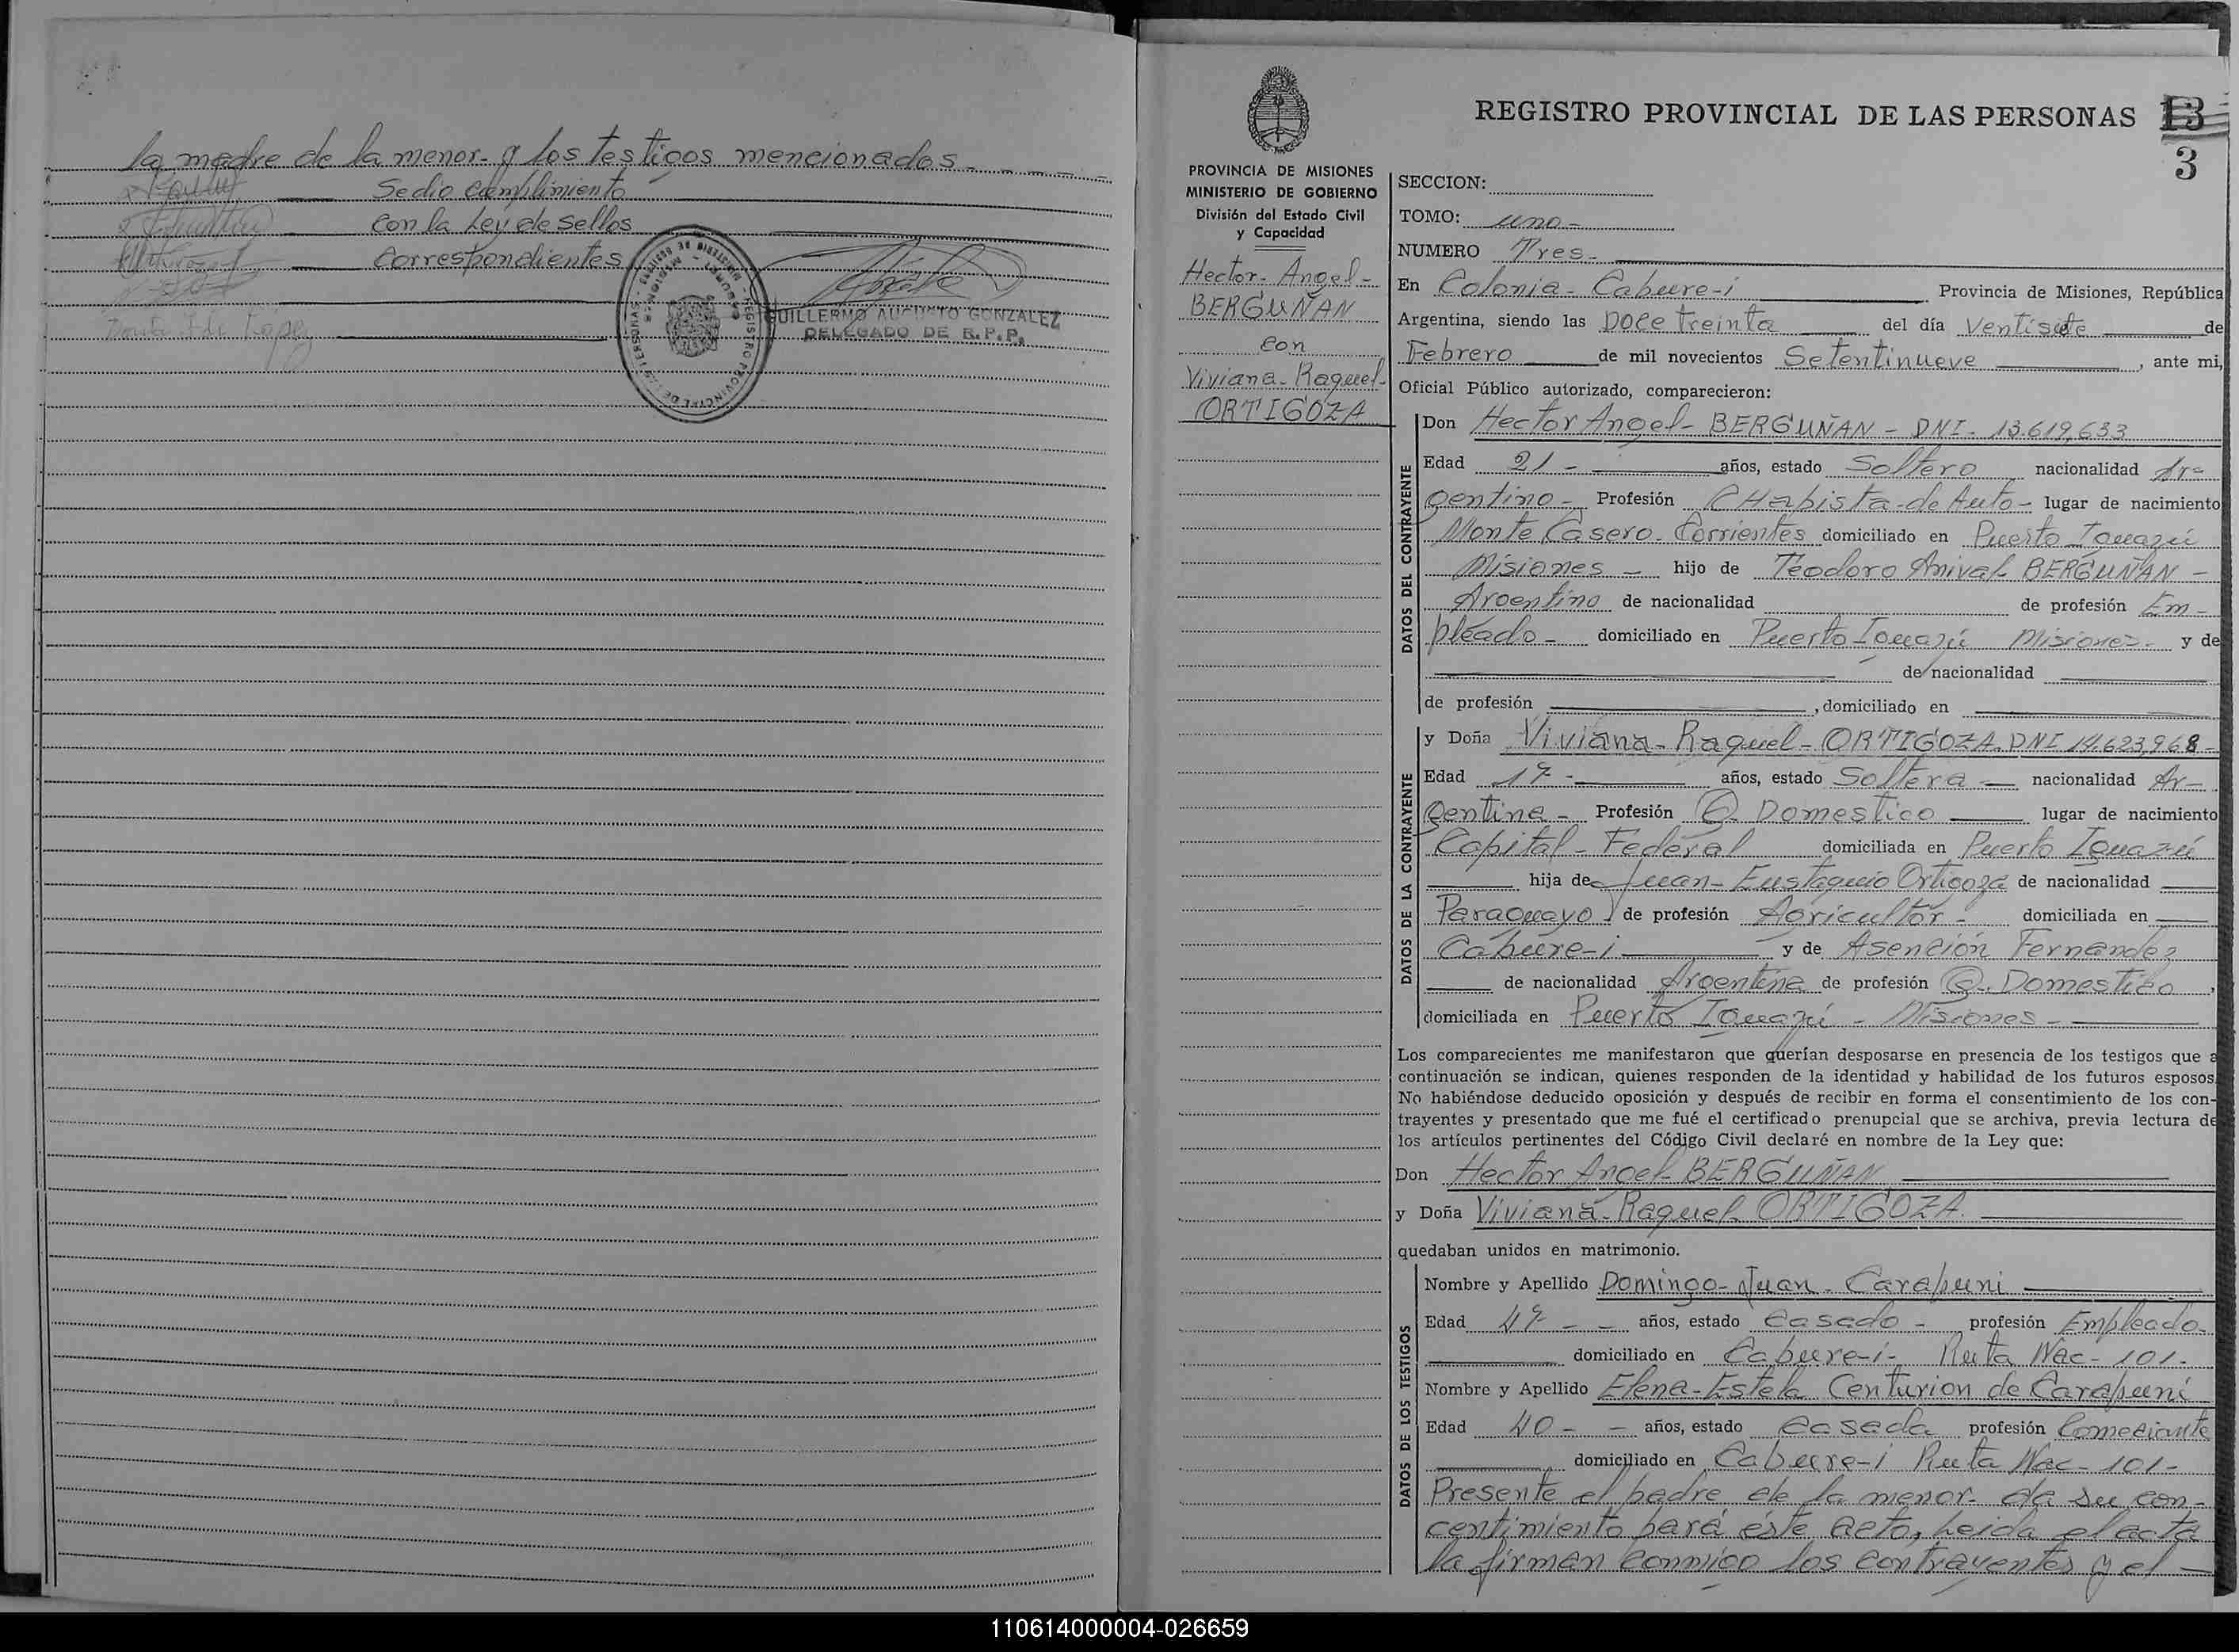 la madre de la menor- y los testigos mencionados
Se dio cumplimiento
con la Ley de Sellos
Correspondientes
GUILLERMO AUGUSTO GONZALEZ
DELEGADO DE R.P.P.
REGISTRO PROVINCIAL DE LAS PERSONAS
13
3
PROVINCIA DE MISIONES
MINISTERIO DE GOBIERNO
División del Estado Civil
y Capacidad
Hector- Angel-
BERGUÑAN
con
Viviana- Raquel-
ORTIGOZA
SECCION:
TOMO: uno-
NUMERO Tres-
En Colonia- Cabure-i Provincia de Misiones, República
Argentina, siendo las Doce treinta del día Ventisete de
Febrero de mil novecientos Setentinueve, ante mi,
Oficial Público autorizado, comparecieron:
DATOS DEL CONTRAYENTE
Don Hector Angel- BERGUÑAN - DNI- 13.619,633
Edad 21- años, estado Soltero nacionalidad Ar-
gentino- Profesión CHapista-de Auto- lugar de nacimiento
Monte Casero- Corrientes domiciliado en Puerto Iguazú
Misiones - hijo de Teodoro Anival- BERGUÑAN -
Argentino de nacionalidad de profesión Em-
pleado- domiciliado en Puerto Iguazú Misiones- y de
de nacionalidad
de profesión , domiciliado en
DATOS DE LA CONTRAYENTE
y Doña Viviana- Raquel- ORTIGOZA. DNI 14.623,968-
Edad años, estado Soltera nacionalidad Ar-
gentina- Profesión Q. Domestico lugar de nacimiento
Capital- Federal domiciliada en Puerto Iguazú
hija de Juan- Eustaquio Ortigoza de nacionalidad
Paraguayo de profesión Agricultor- domiciliada en
Cabure-i y de Asención Fernandez
de nacionalidad Argentina de profesión Q. Domestico,
domiciliada en Puerto Iguazú - Misiones-
Los comparecientes me manifestaron que querían desposarse en presencia de los testigos que a
continuación se indican, quienes responden de la identidad y habilidad de los futuros esposos.
No habiéndose deducido oposición y después de recibir en forma el consentimiento de los con-
trayentes y presentado que me fué el certificado prenupcial que se archiva, previa lectura de
los artículos pertinentes del Código Civil declaré en nombre de la Ley que:
Don Hector Angel- BERGUÑAN
y Doña Viviana- Raquel- ORTIGOZA.
quedaban unidos en matrimonio.
DATOS DE LOS TESTIGOS
Nombre y Apellido Domingo- Juan- Carapuni
Edad años, estado Casado- profesión Empleado-
domiciliado en Cabure-i- Ruta Nac- 101-
Nombre y Apellido Elena-Estela Centurion de Carapuni
Edad 40- - años, estado Casada profesión Comeciante
domiciliado en Cabure-i Ruta Nac- 101-
Presente el padre de la menor- da su con-
centimiento pará éste acto, Leida el acta
la firman conmigo los contrayentes y el -
110614000004-026659